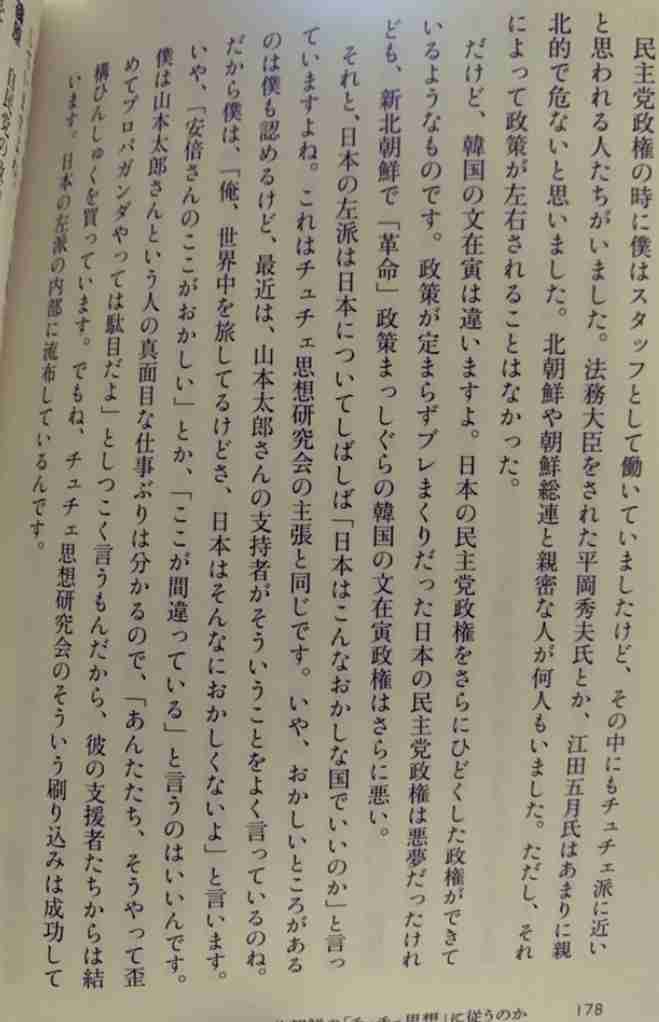 民主党政権の時に僕はスタッフとして働いていましたけど、その中にもチュチェ派に近い
と思われる人たちがいました。法務大臣をされた平岡秀夫氏とか、江田五月氏はあまりに親
北的で危ないと思いました。北朝鮮や朝鮮総連と親密な人が何人もいました。ただし、それ
によって政策が左右されることはなかった。
だけど、韓国の文在寅は違いますよ。日本の民主党政権をさらにひどくした政権ができて
いるようなものです。政策が定まらずブレまくりだった日本の民主党政権は悪夢だったけれ
ども、新北朝鮮で「革命」政策まっしぐらの韓国の文在寅政権はさらに悪い。
それと、日本の左派は日本についてしばしば「日本はこんなおかしな国でいいのか」と言っ
ていますよね。これはチュチェ思想研究会の主張と同じです。いや、おかしいところがある
のは僕も認めるけど、最近は、山本太郎さんの支持者がそういうことをよく言っているのね。
だから僕は、「俺、世界中を旅してるけどさ、日本はそんなにおかしくないよ」と言います。
いや、「安倍さんのここがおかしい」とか、「ここが間違っている」と言うのはいいんです。
僕は山本太郎さんという人の真面目な仕事ぶりは分かるので、「あんたたち、そうやって歪
めてプロパガンダやっては駄目だよ」としつこく言うもんだから、彼の支援者たちからは結
構ひんしゅくを買っています。でもね、チュチェ思想研究会のそういう刷り込みは成功して
います。日本の左派の内部に流布しているんです。
「チュチェ思想」に従うのか
178